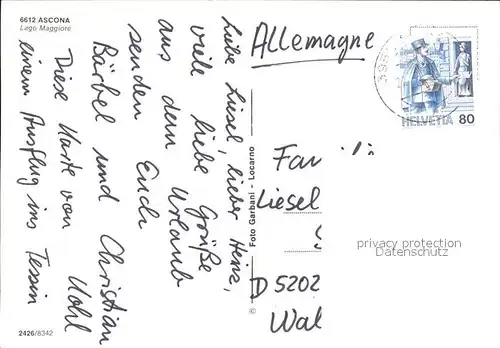 6612 ASCONA
Lago Maggiore
Liebe Liesel, lieber Heinz,
viele liebe Grüße
aus dem Urlaub
senden Euch
Bärbel und Christian
Diese Karte von Uohl
einem Ausflug ins Tessin
2426/8342
© Foto Garbani - Locarno
Allemagne
HELVETIA 80
Fam
Liesel
D 5202
Wal
privacy protection
Datenschutz